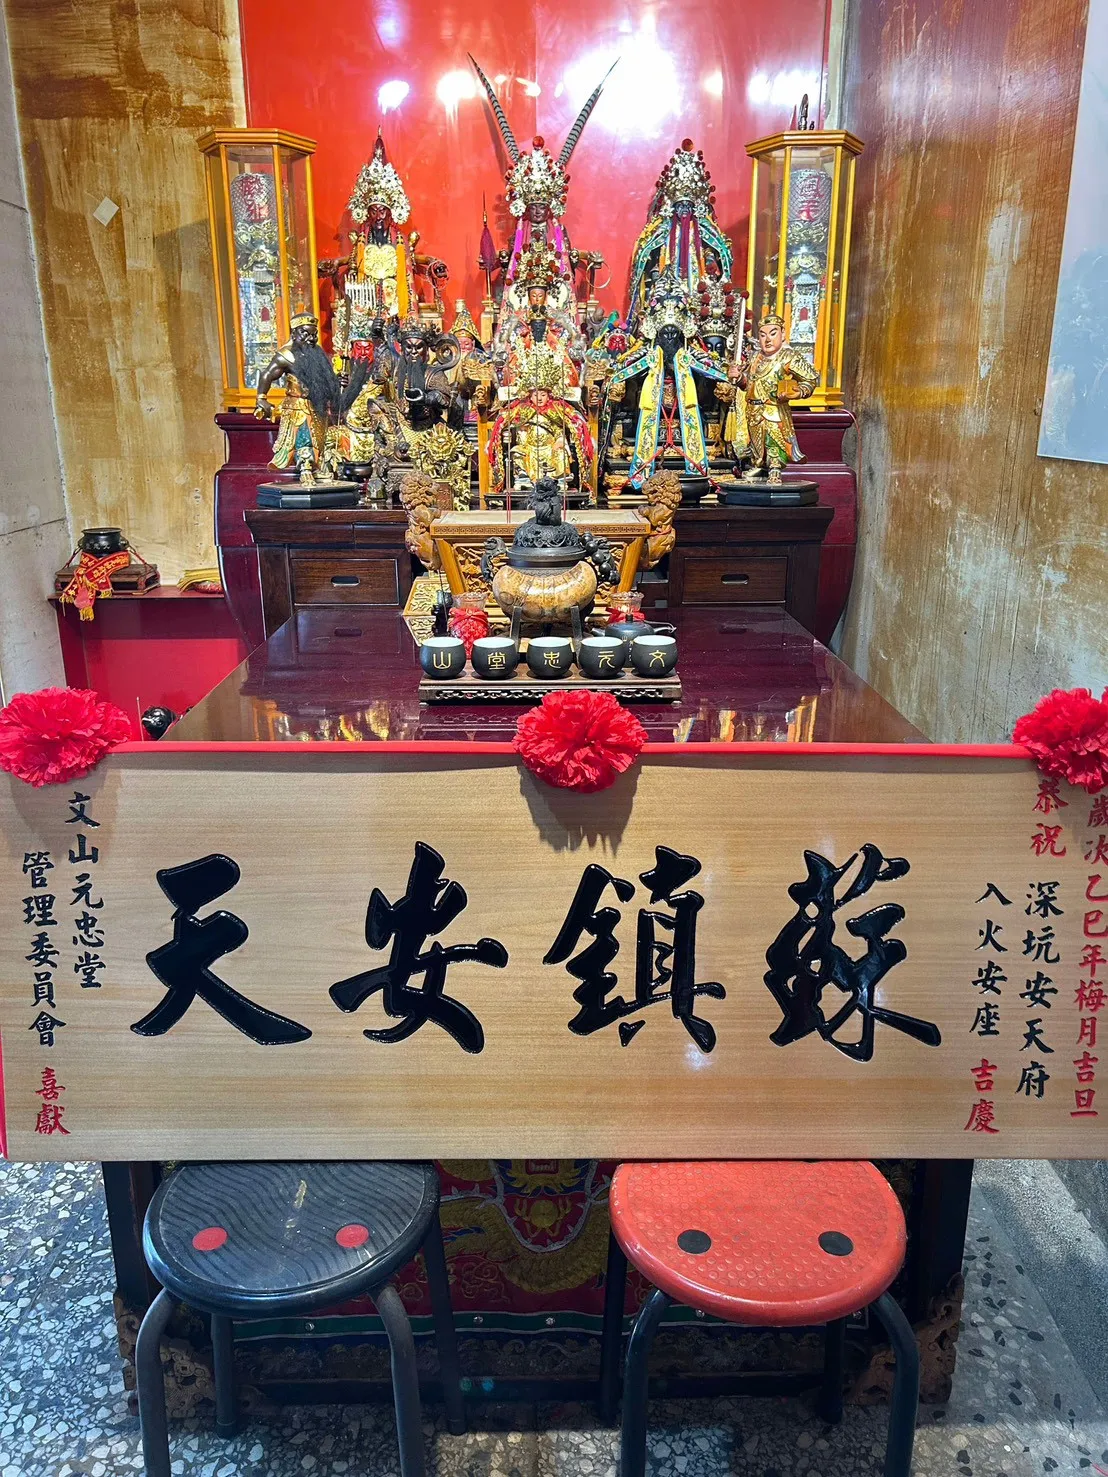 文元忠堂山
歲次乙巳年梅月吉旦
恭祝 深坑安天府
入火安座 吉慶
蘇鎮安天
文山元忠堂
管理委員會 喜獻